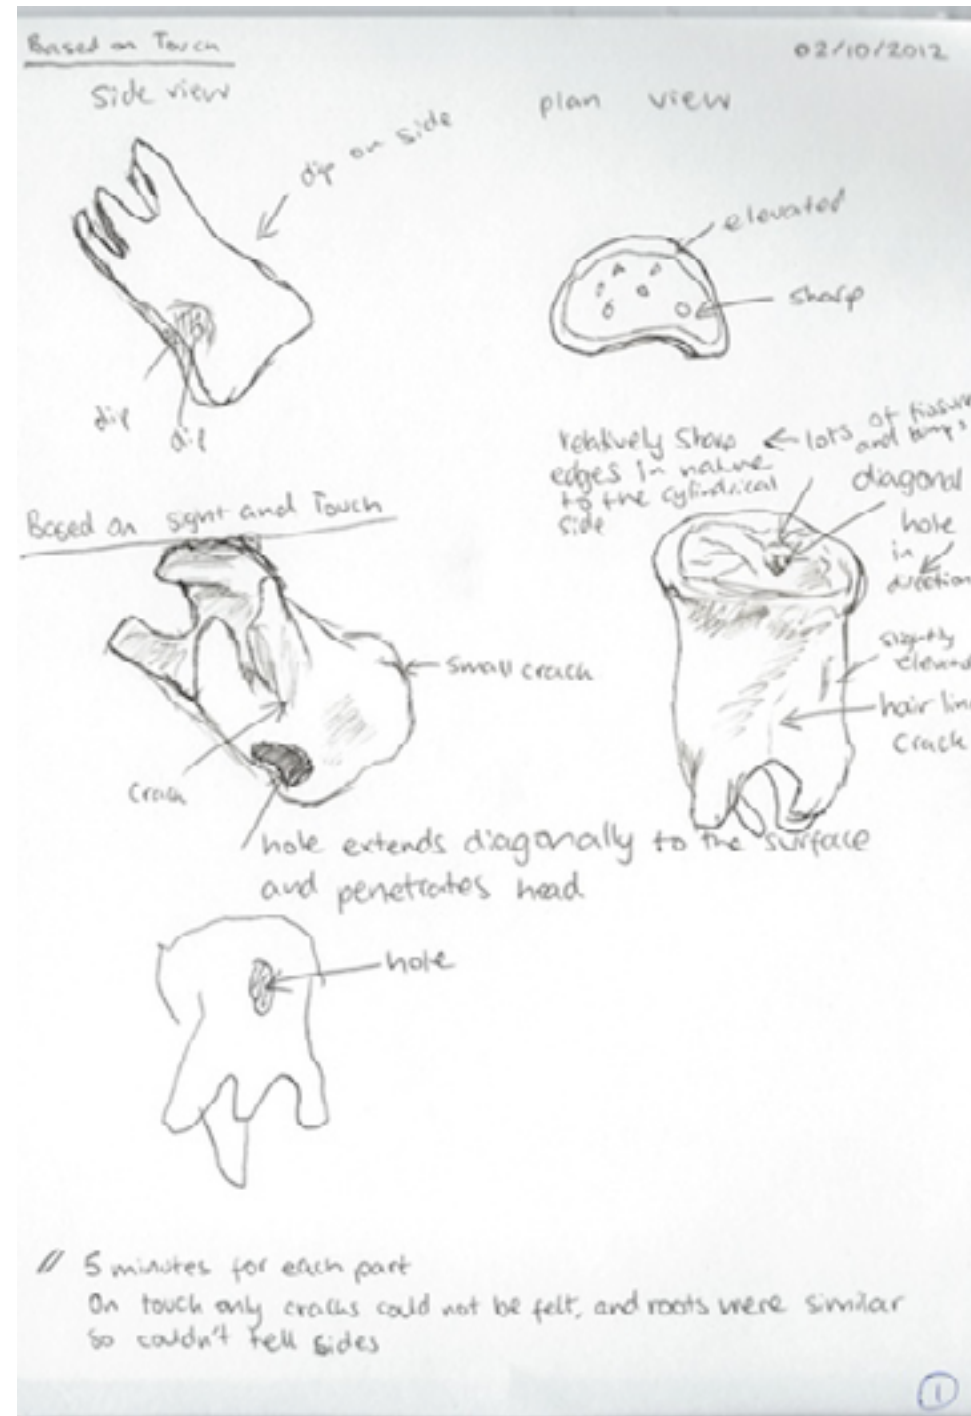 Based on Touch
02/10/2012
Side view
plan view
dip on side
elevated
sharp
dip
dip
relatively sharp ← lots of fissures
edges in nature and bumps
to the cylindrical
side
diagonal
hole
in
direction
Based on sight and Touch
small crack
slightly
hair line
crack
crack
hole extends diagonally to the surface
and penetrates head
hole
// 5 minutes for each part
On touch only cracks could not be felt, and roots were similar
so couldn't tell sides
1